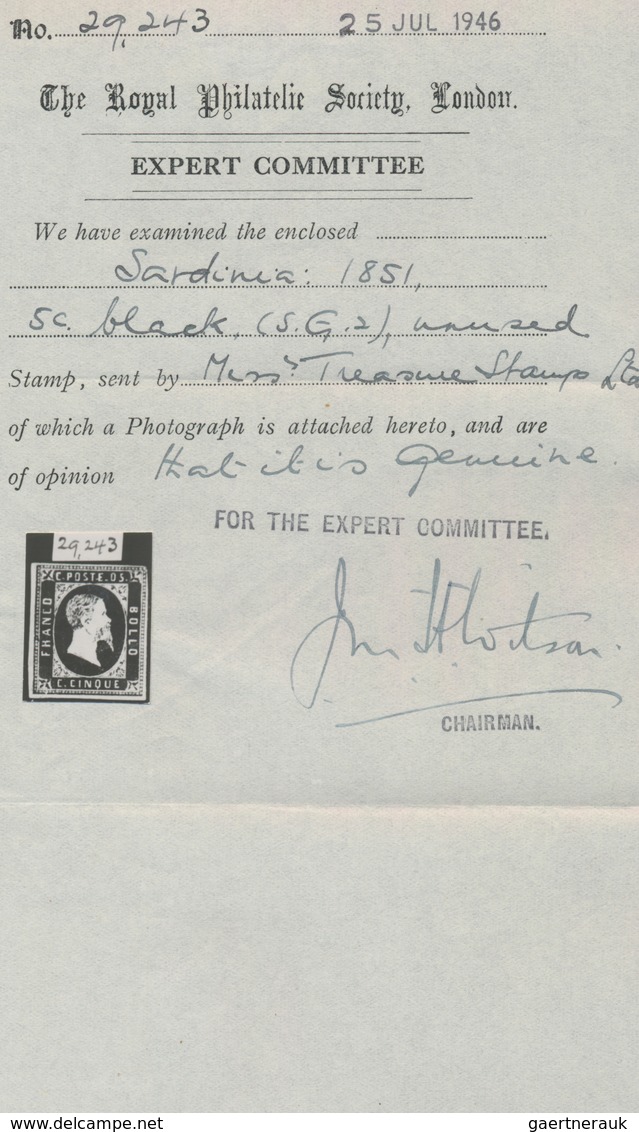 No. 29,243 25 JUL 1946
The Royal Philatelic Society, London.
EXPERT COMMITTEE
We have examined the enclosed
Sardinia: 1851,
5c. black, (S.G.2), unused
Stamp, sent by Messrs. Treasure Stamps Ltd
of which a Photograph is attached hereto, and are
of opinion that it is genuine.
FOR THE EXPERT COMMITTEE.
29,243
C. POSTE. DS.
FRANCO
BOLLO
C. CINQUE
CHAIRMAN.
www.delcampe.net
gaertnerauk